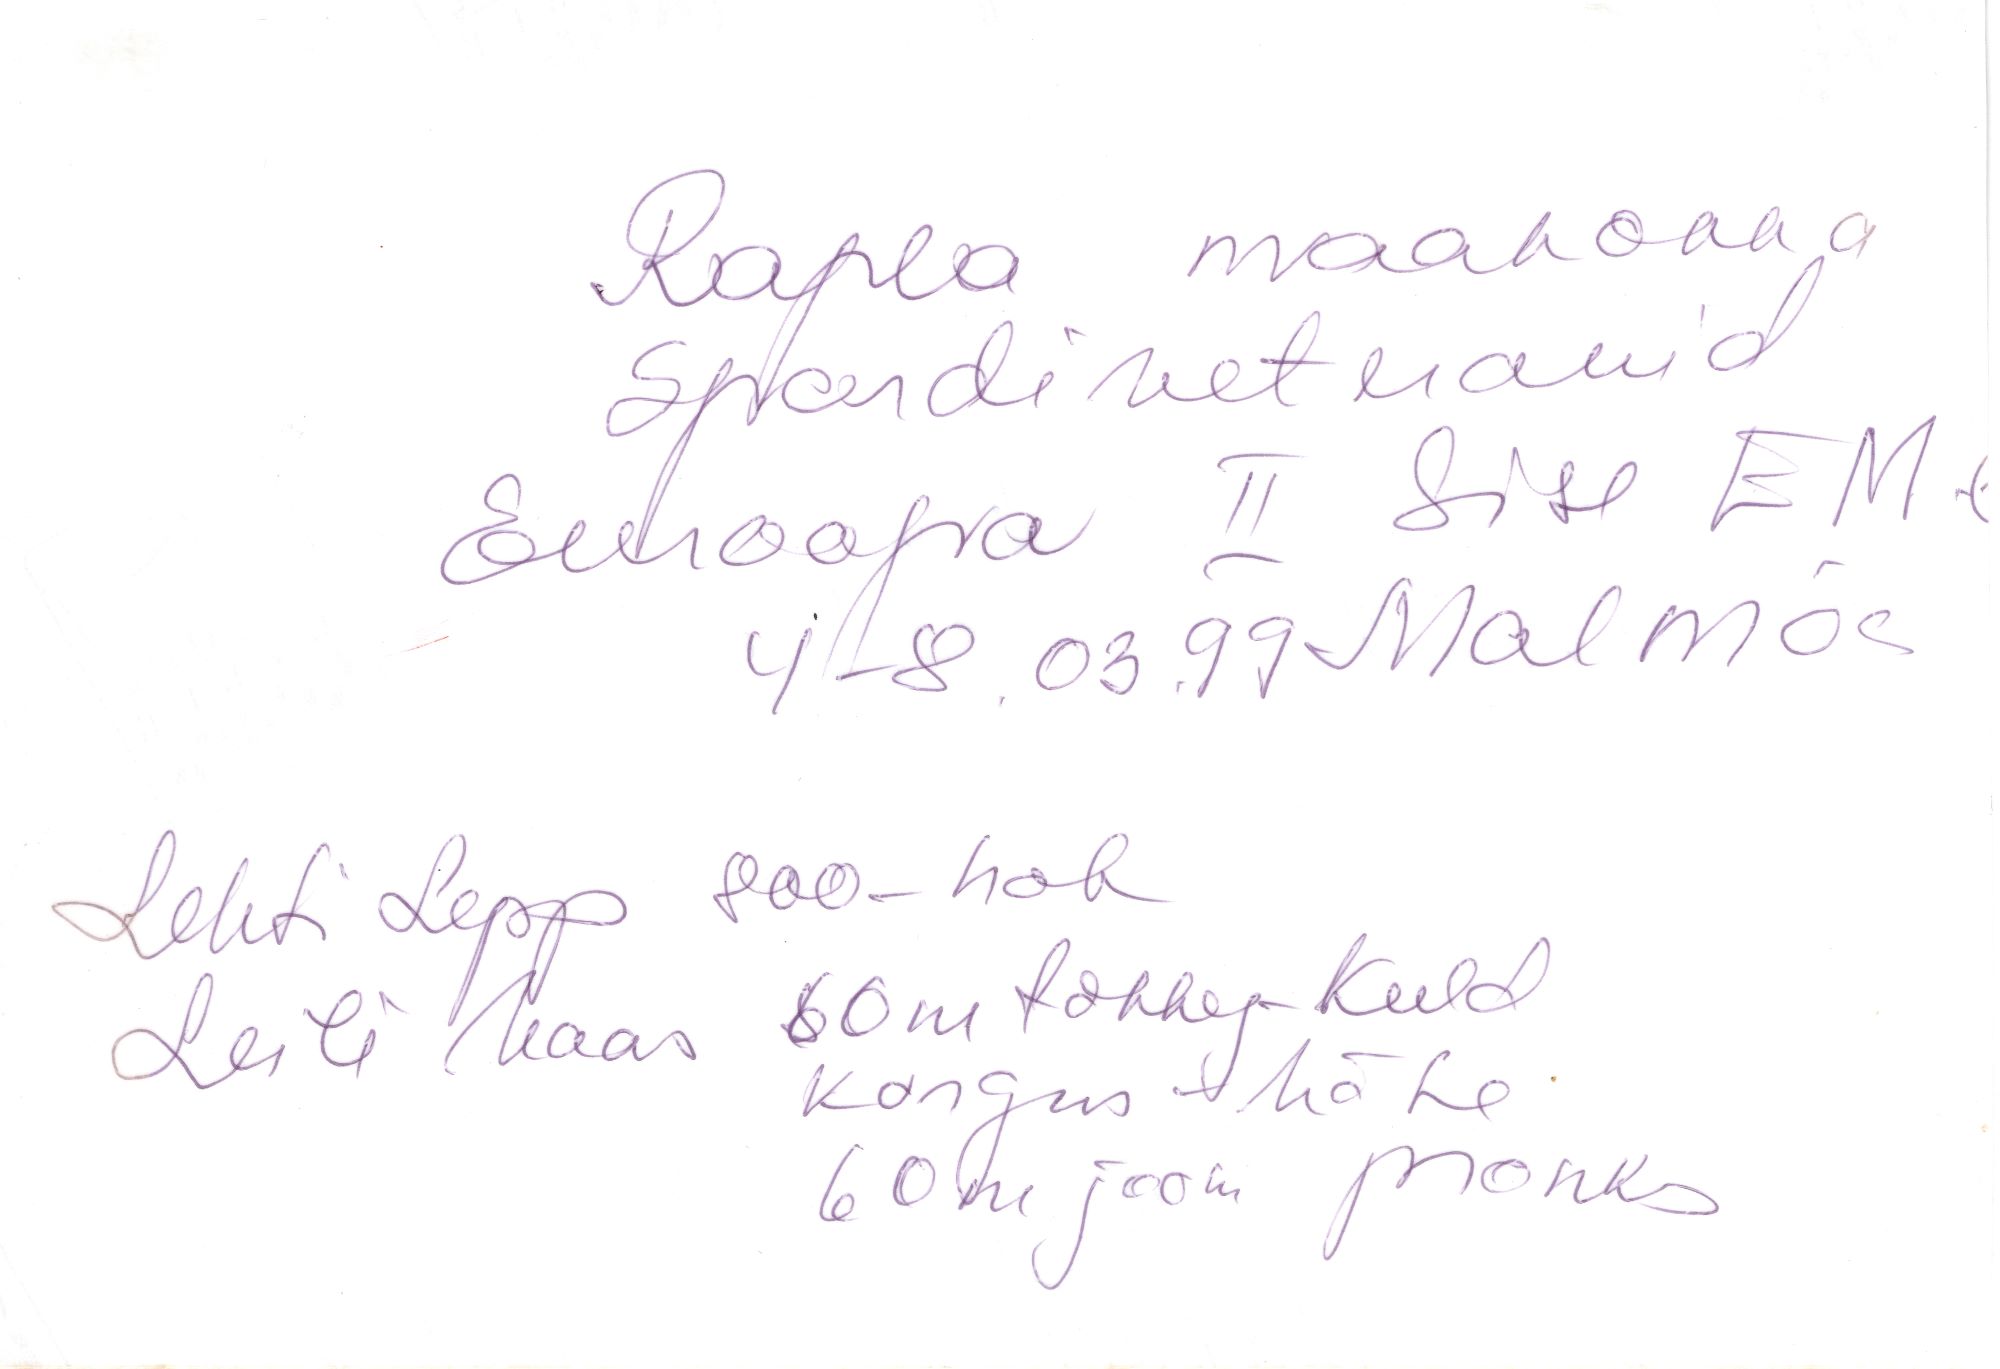 Rapla maakonna
spordiveteranid
Euroopa II Sise EM-l
4-8.03.99 Malmös
Lehti Lepp 800-hõb
Leili Kaas 60m tõkkej-kuld
kõrgus hõbe
60m jooks pronks